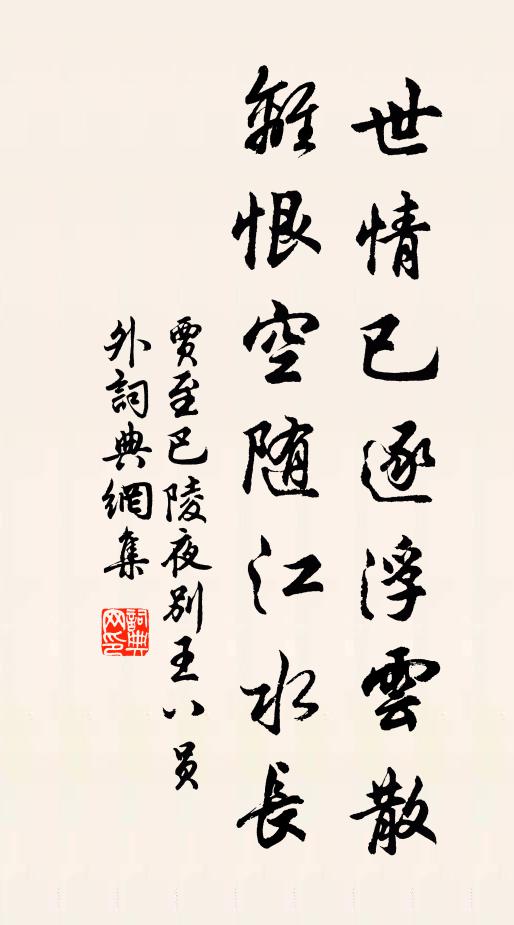 世情已逐浮雲散
離恨空随江水長
賈至巴陵夜别王八员
外詞典網集
詞典網印